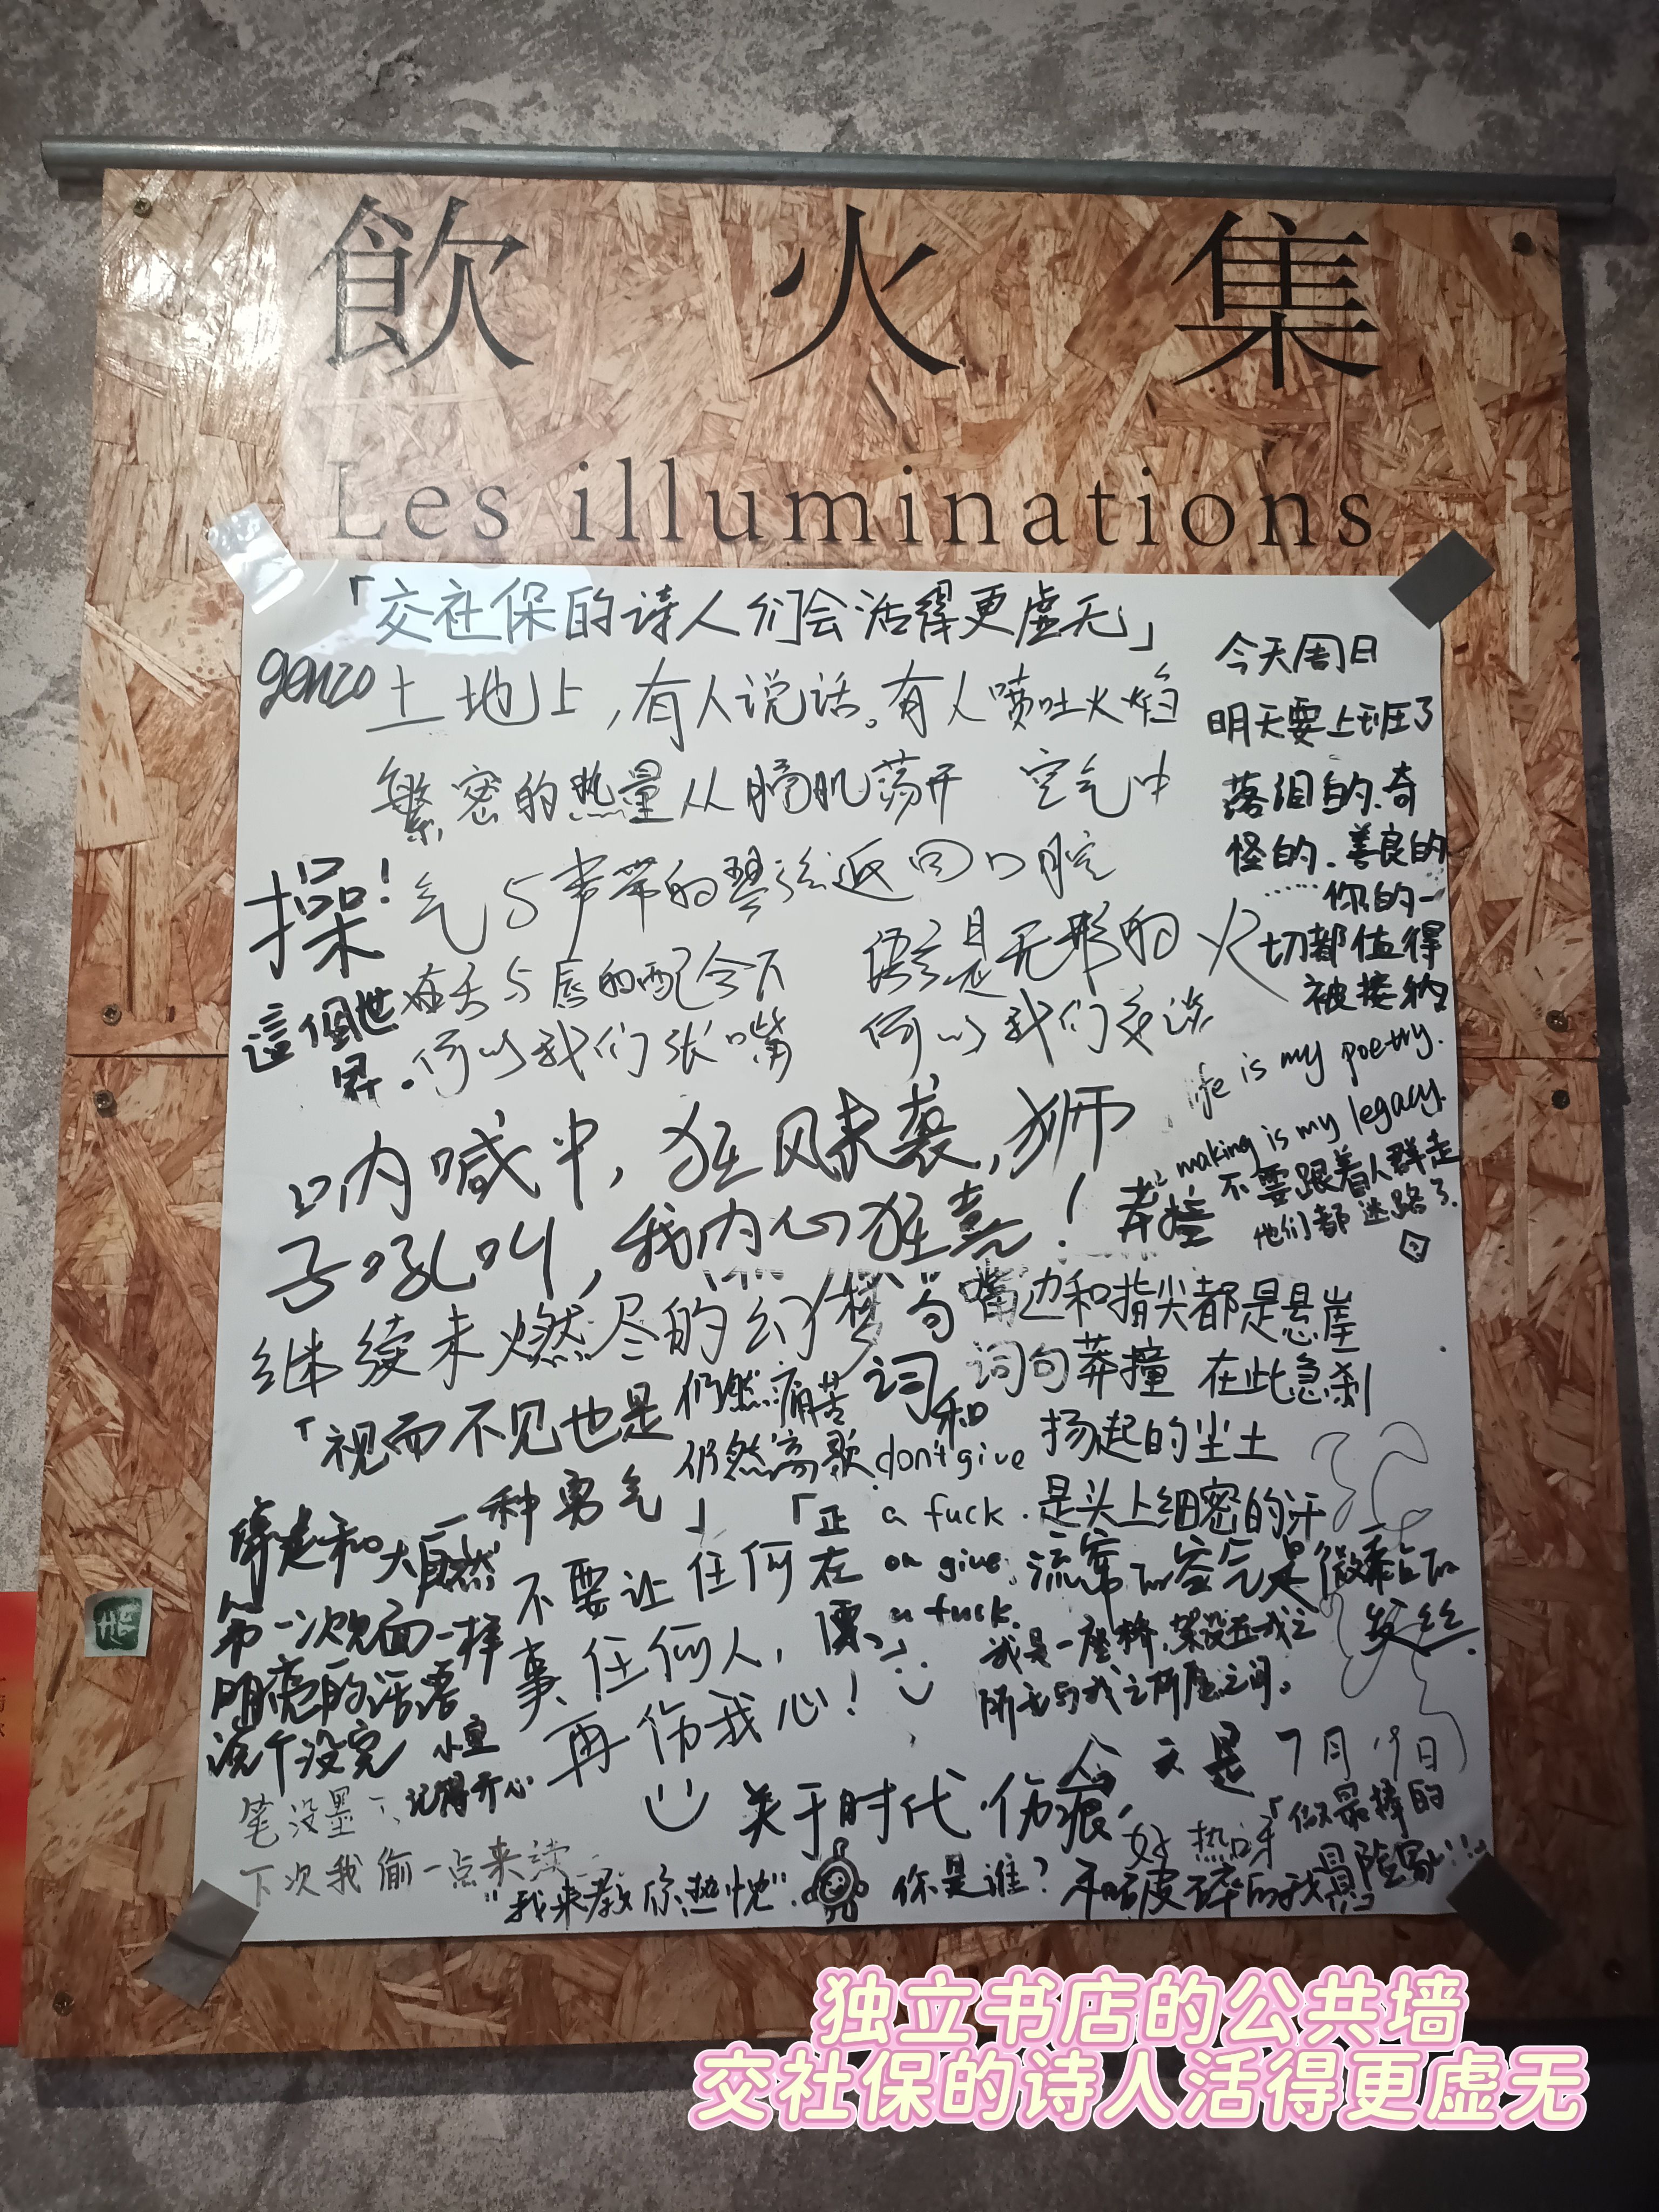 飲火集
Les illuminations
「交社保的诗人们会活得更虚无」
genzo
土地上，有人说话。有人喷吐火焰
繁密的热量从胸肌荡开 空气中
气与声带的琴弦返回口腔
在舌与唇的配合下 语言是无形的火
何以我们张嘴 何以我们交谈
操！
這個世
界。
今天周日
明天要上班了
落泪的、奇
怪的、善良的
……你的一
切都值得
被接纳
life is my poetry.
making is my legacy.
不要跟着人群走
他们都迷路了.
呐喊中，狂风来袭，狮
子吼叫，我内心狂喜！
莽撞
继续未燃尽的幻梦
句
词
和
嘴边和指尖都是悬崖
词句莽撞 在此急刹
扬起的尘土
是头上细密的汗
流窜的空气是微黏的
发丝
「视而不见也是
一种勇气」
仍然痛苦
仍然高歌
don't give
a fuck.
on give
a fuck.
「正
在
不要让任何
事、任何人，
再伤我心！
和大自然
第一次见面一样
明亮的话语
说个没完
小宝
记得开心
我是一座桥，架设在我之
所无与我之所愿之间。
笔没墨了
下次我偷一点来续
今天是7月19日
好热呀
关于时代伤痕，
"我来教你热忱"
你是谁？
和破碎的我
「做最棒的
冒险家!!!」
独立书店的公共墙
交社保的诗人活得更虚无